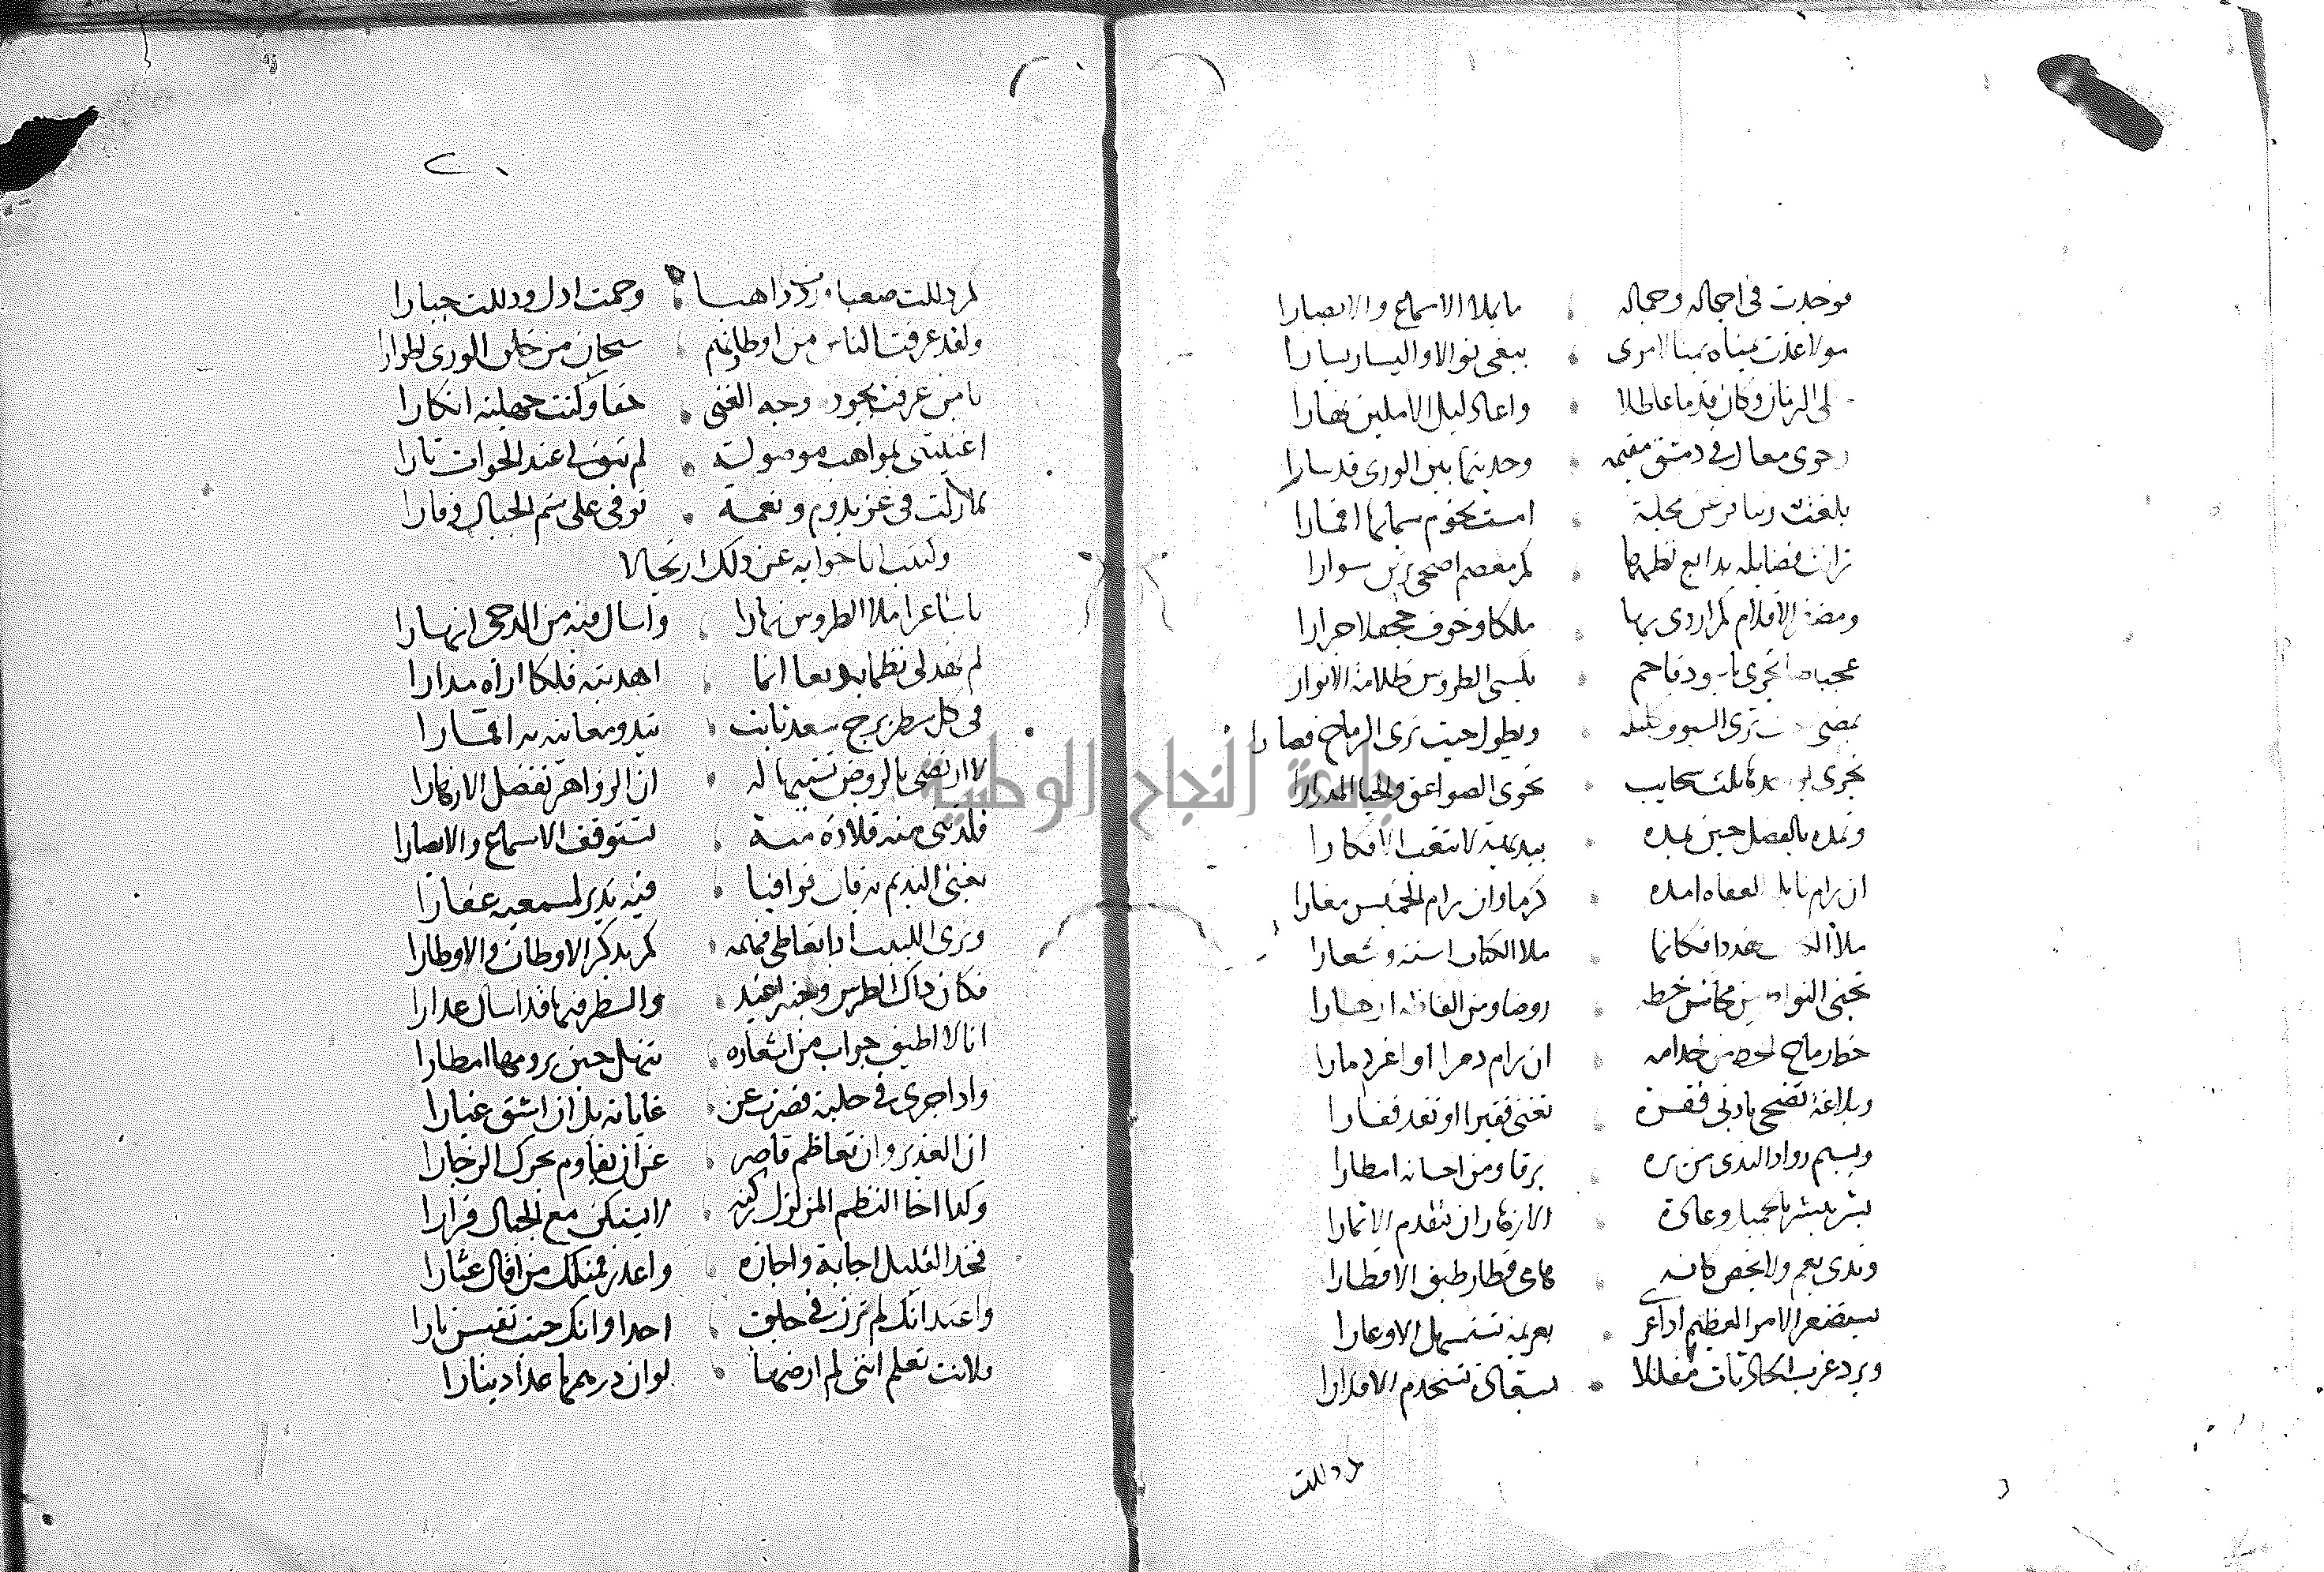 فوجدت في اجماله وجماله ما يملا الاسماع والابصارا
مولا غدت يمناه يمنا لامرى يبغى نوالا واليسار يسارا
الزمان وكان قدما عاطلا واعاد ليل الاملين نهارا
وحوى معال في دمشق مقيمه وحديثها بين الورى قد سارا
بلغت محلة امست نجوم سمايها اقمارا
زانت فضايله بدايع نظمها كم معصم اضحى يزين سوارا
الاقلام كم اردى بها ملكا وخوف جحفلا جرارا
عجبا تجرى فاحم يكسى الطروس ظلامه الانوار
ترى السيوف كليله ويطول حيث ترى الرماح قصارا
تجرى سحايب تحوى الصواعق والحيا المدرارا
وتمده بالفضل حين يمده ببديهة لا تتعب الافكارا
ان رام نايل العفاه امده كرما وان رام الخميس مغارا
ملا فكانما ملا الكتاب اسنه وشعارا
تجنى النواظر من محاسن خطه روضا ومن الفاظه ازهارا
خطا رماح الخط من خدامه ان رام دمرا او اغر ذمارا
وبلاغة تضحى بادنى فقرة تغنى فقيرا او تقد فقارا
ويسيم رواد الندى من بره برقا ومن احسانه امطارا
بشر يبشر بالجميل وعادة الازهار ان تتقدم الاثمارا
وندى يعم ولا يخص كانه هامى قطار طبق الاقطارا
يستصغر الامر العظيم اذا عر بعزيمة تستسهل الاوعارا
ويرد غرب الحادثات مفللا بسعادة تستخدم الاقدارا
كم ذللت
٢٠
كم ذللت صعبا ورد ذاهبا وحمت اذل وذللت جبارا
ولقد عرفت الناس من اوطانهم سبحان من خلق الورى اطوارا
يا من عرفت بجوده وجه الغنى حقا وكنت جهلته انكارا
اغنيتنى بمواهب موصولة لم تبق لى عند الحوادث ثارا
لا زلت في عز يدوم ونعمة توفى على شم الجبال وقارا
وكتبت انا جوابه عن ذلك ارتجالا
يا شاعرا ملا الطروس نهارا واسال فيه من الدجى انهارا
لم تهد لى نظما بديعا انما اهديته فلكا اراه مدارا
في كل سطر برج سعد ثابت تبدو معانيه به اقمارا
لا ارتضى بالروض تشبيها له ان الزواهر تفضل الازهارا
قلدتنى منه قلادة منة تستوقف الاسماع والابصارا
يغنى النديم به فان قوافيا فيه تدير لمسمعيه عقارا
وترى اللبيب اذا تعاطى فهمه كم يذكر الاوطان والاوطارا
فكان ذاك الطرس وجنه اغيد والسطر فيها قد اسال عذارا
انا لا اطيق جواب من اشعاره تنهل حين يرومها امطارا
واذا جرى في حلبة قصرت عن غاياته بل ان اشق غبارا
ان الغدير وان تعاظم قاصر عن ان يقاوم بحرك الزخارا
وكذا اخا النظم المزلزل ركنه لا يستكن مع الجبال قرارا
فخذ القليل اجابة واجازه واعذر فمثلك من اقال عثارا
واعتد انك لم تزر في جلق احدا وانك جيت تقبس نارا
ولانت تعلم اننى لم ارضها لو ان درهمها غدا دينارا
جامعة النجاح الوطنية